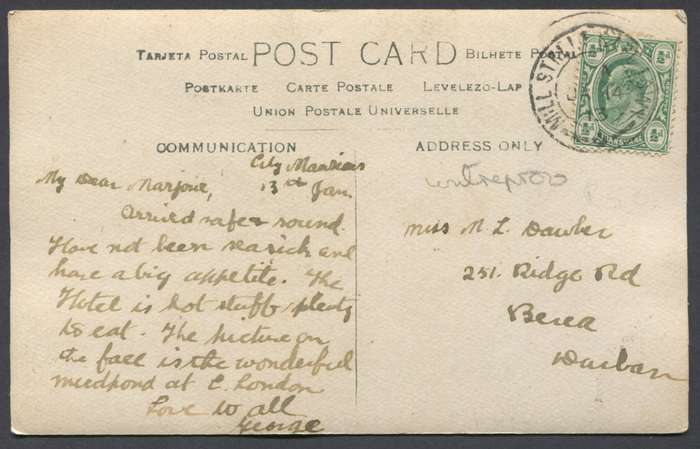 TARJETA POSTAL POST CARD BILHETE POSTAL
POSTKARTE CARTE POSTALE LEVELEZO-LAP
UNION POSTALE UNIVERSELLE
COMMUNICATION
City Mansions
13th Jan
My Dear Marjorie,
Arrived safe & sound.
Have not been seasick and
have a big appetite. The
Hotel is hot stuff & plenty
to eat. The picture on
the face is the wonderful
mudpond at E. London
Love to all
George
ADDRESS ONLY
Miss M. L. Dawber
251. Ridge Rd
Berea
Durban
MILL STREET
½d ½d
½d